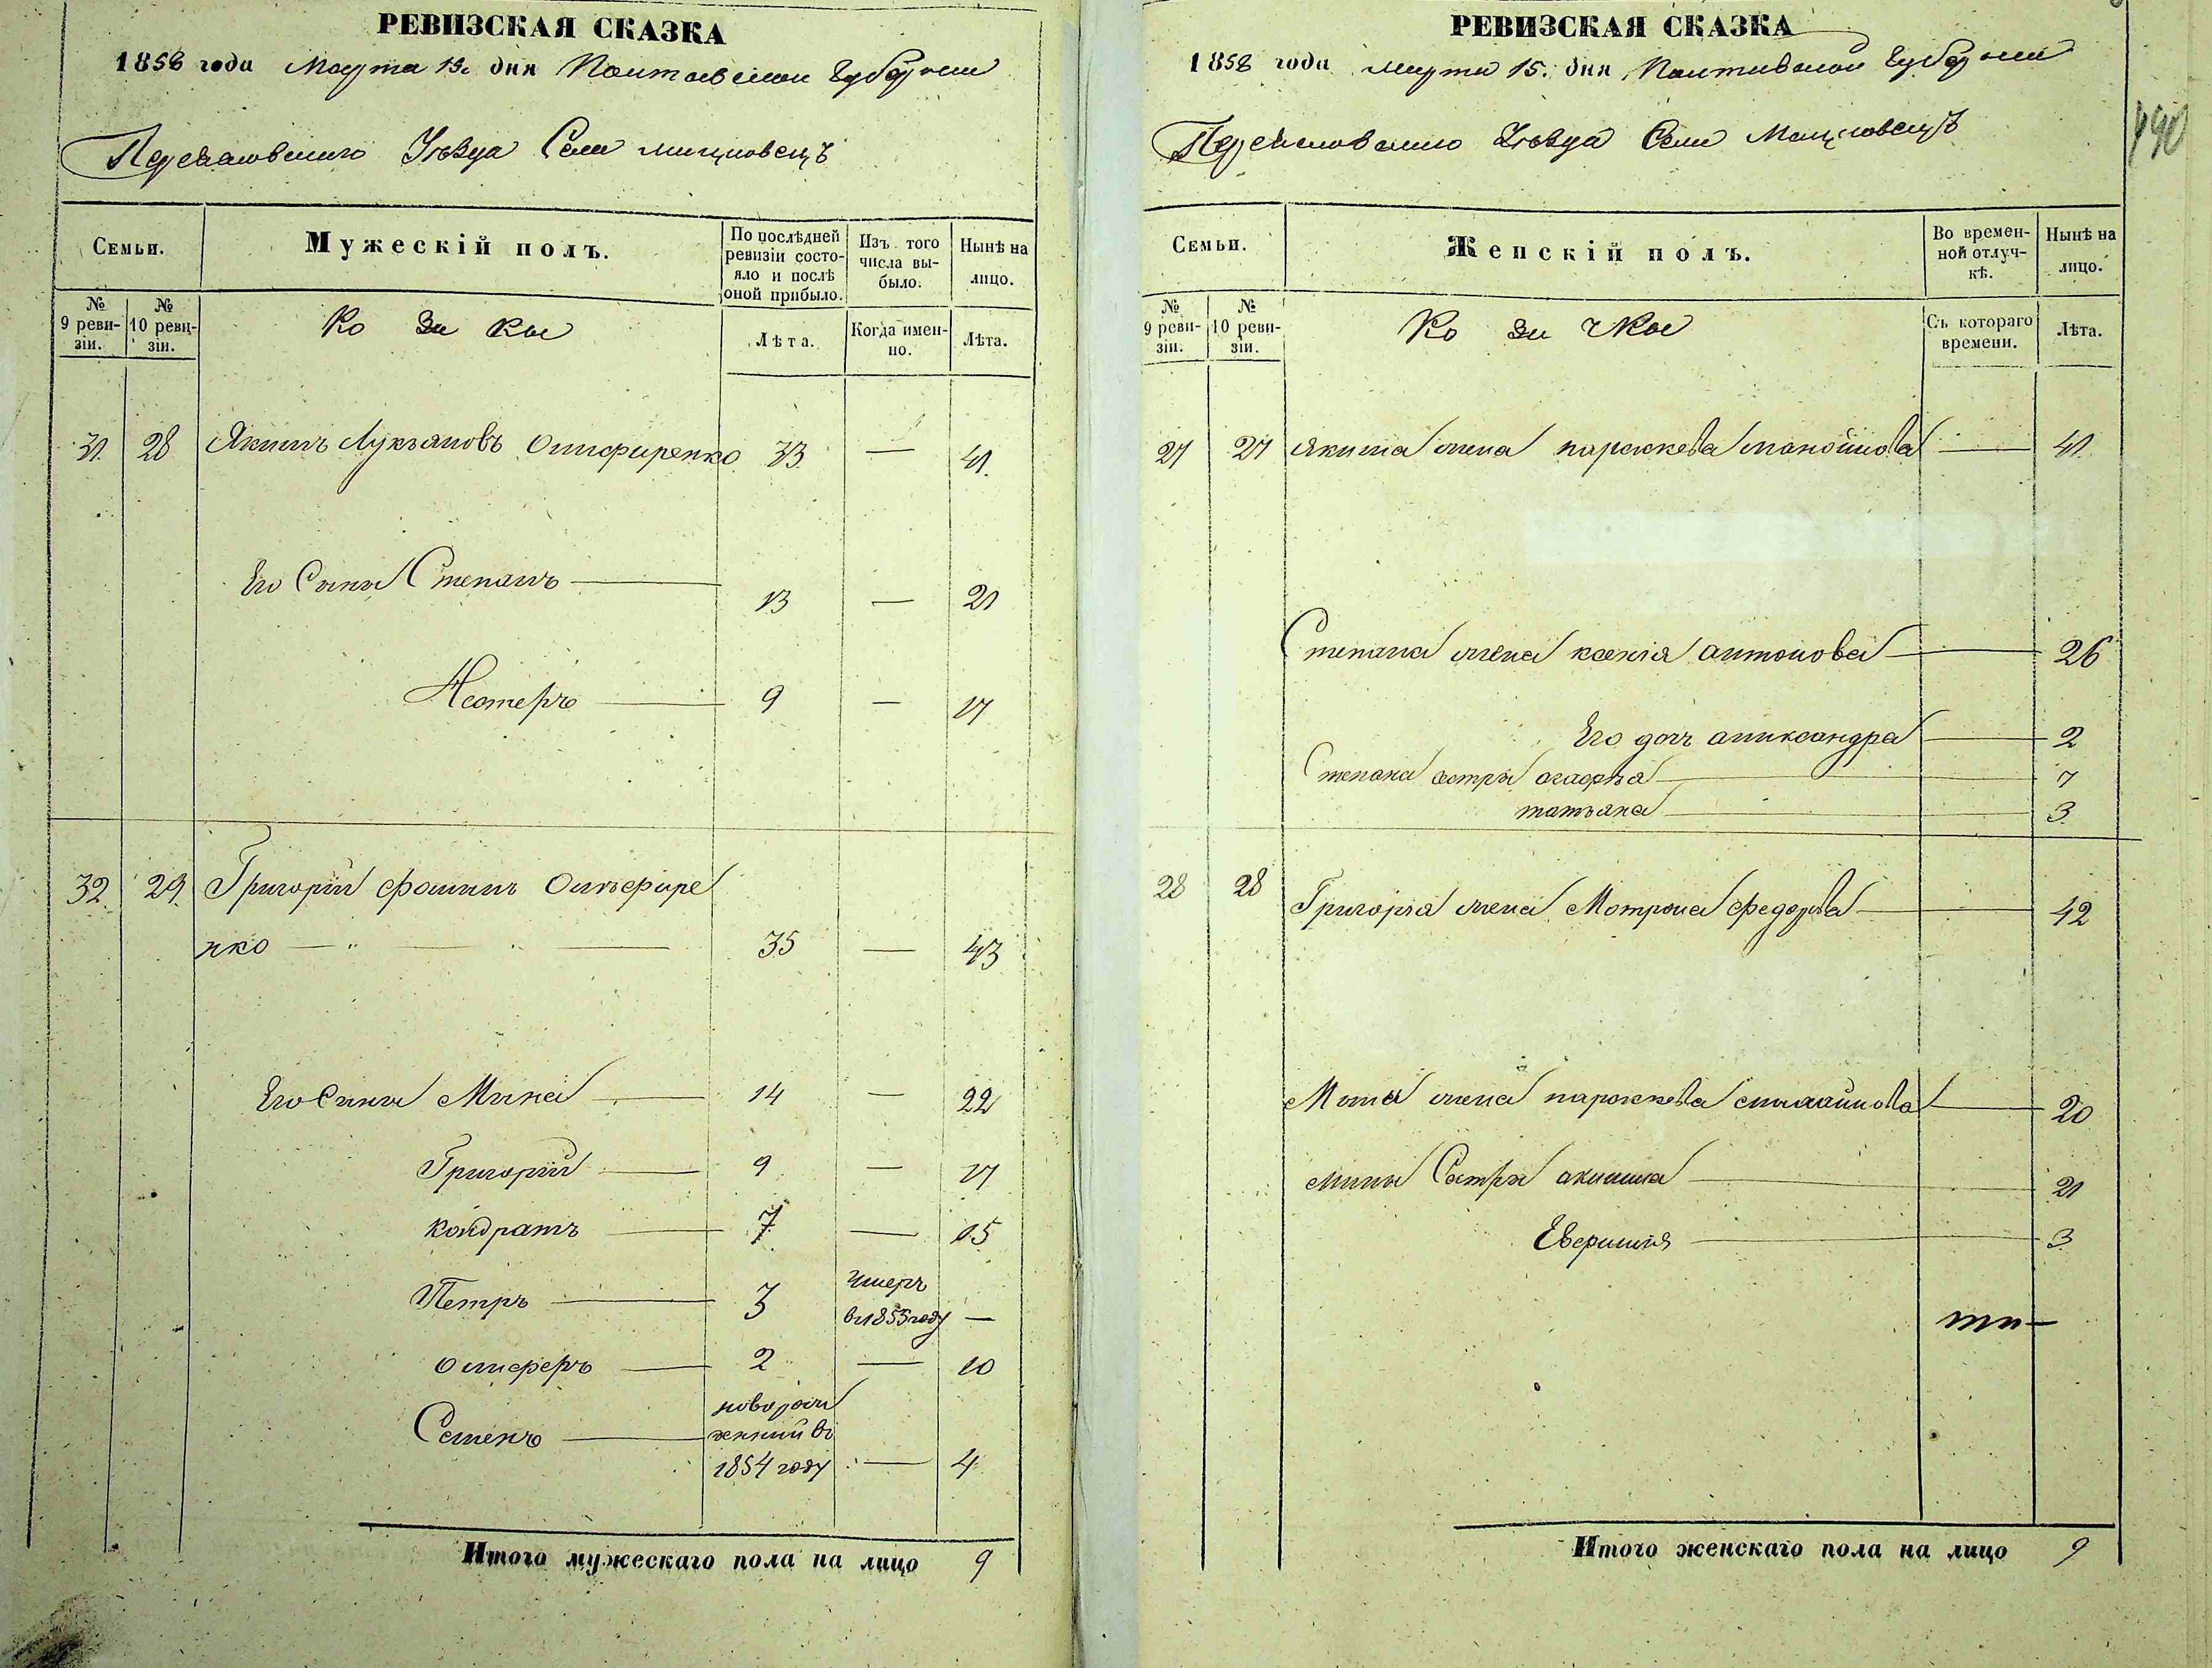 РЕВИЗСКАЯ СКАЗКА
1858 года Марта 15. дня Полтавской Губернии
Переяславского Уѣзда Села
Семьи.
Мужескій полъ.
По послѣдней ревизіи состояло и послѣ оной прибыло.
Изъ того числа выбыло.
Нынѣ на лицо.
№ 9 ревизіи.
№ 10 ревизіи.
Ко за ки
Лѣта.
Когда именно.
Лѣта.
31. 28 Якимъ Лукъяновъ Олиференко 33 — 41.
Его Сыны Степанъ — 13 — 21
Нестеръ — 9 — 17
32. 29. Григорій Фоминъ Олъефире
нко — 35 — 43
Его Сыны Мина — 14 — 22
Григорій — 9 — 17
Кондратъ — 7 — 15
Петръ — 3 умеръ в 1855 году —
Олиферъ — 2 — 10
Семенъ — новорож
женний в
1854 году — 4
Итого мужескаго пола на лицо 9
РЕВИЗСКАЯ СКАЗКА
1858 года Марта 15. дня Полтавской Губернии
Переяславского Уѣзда Села
190
Семьи.
Женскій полъ.
Во временной отлучкѣ.
Нынѣ на лицо.
№ 9 ревизіи.
№ 10 ревизіи.
Ко за чки
Съ котораго времени.
Лѣта.
27 27 Якима жена парожкева — 41.
Степана жена ксенія антонова — 26
Его доч аликсандра — 2
Степана сестры агафъя — 7
татъяна — 3
28 28 Григорія жена Мотрона федорова — 42
Мины жена парожкева — 20
мины Сестры акилина — 21
Евфимия — 3
Итого женскаго пола на лицо 9